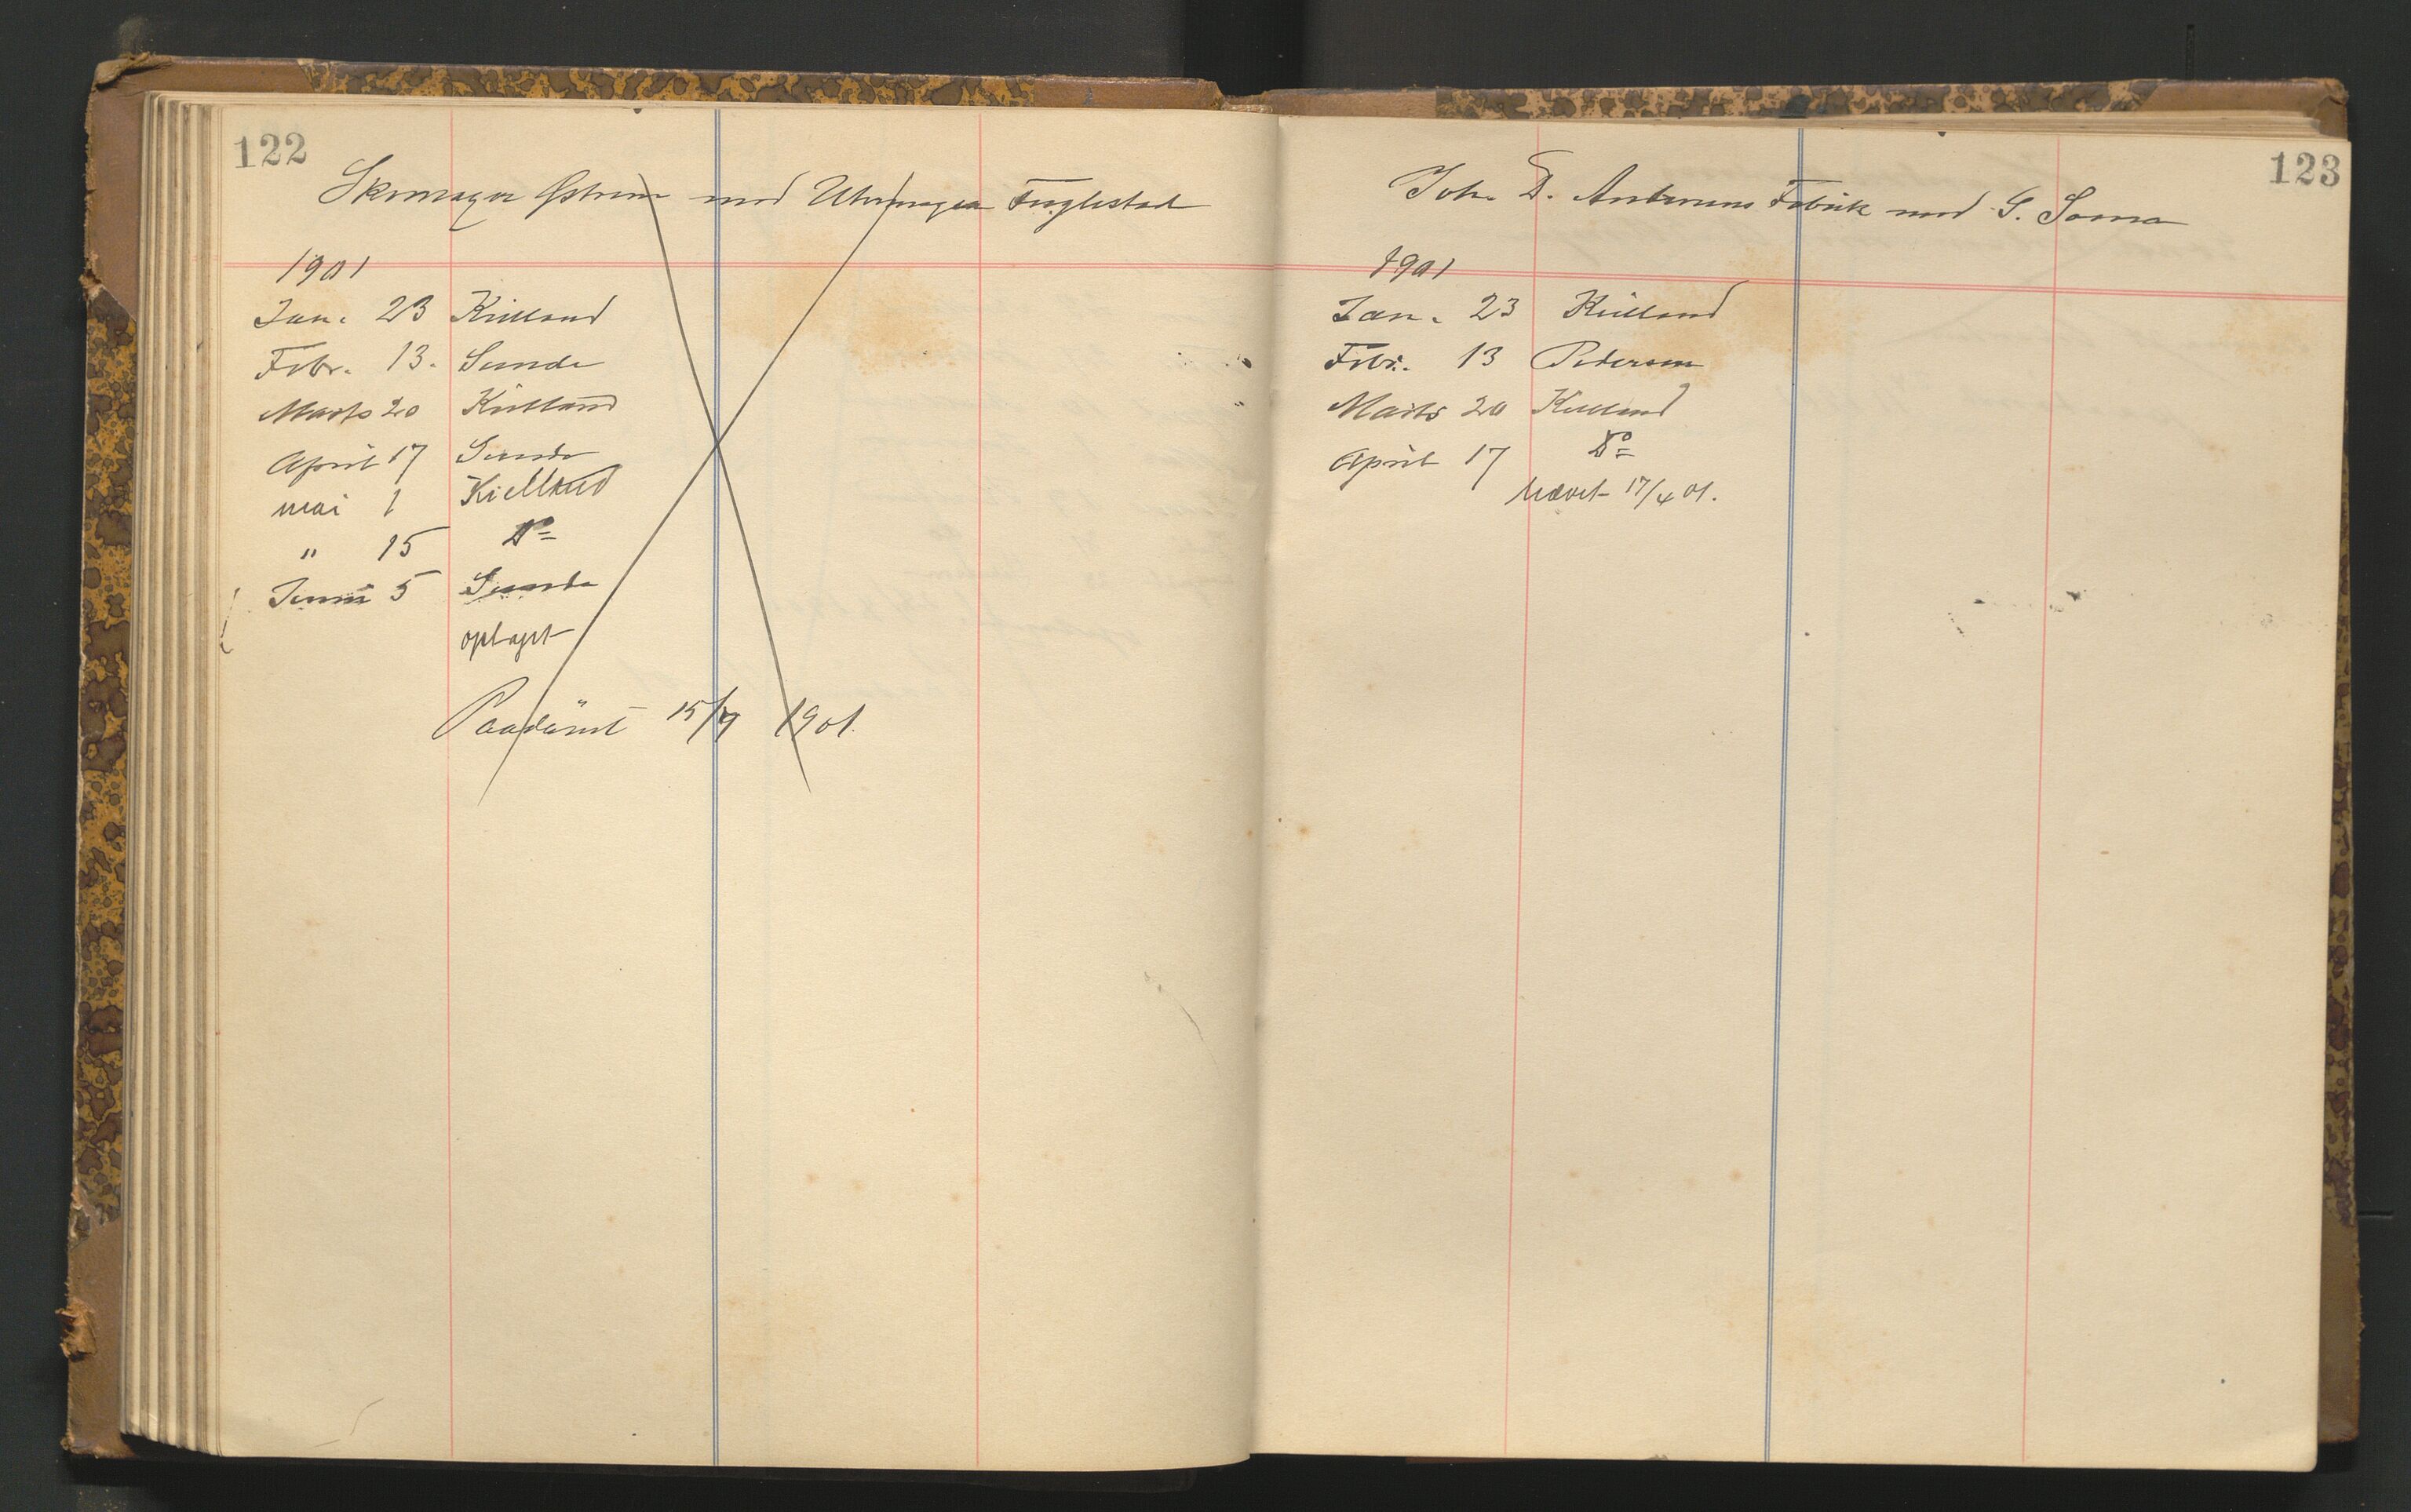 122
Skomager Østrem mod Uhrmager Fuglestad
1901
Jan. 23 Kielland
Febr. 13. Sunde
Marts 20 Kielland
April 17 Sunde
mai 1 Kielland
" 15 Do
Juni 5 Sunde
optaget
Paadömt 15/7 1901.
123
Joh. D. Fabrik mod G. Soma
1901
Jan. 23 Kielland
Febr. 13 Pedersen
Marts 20 Kielland
April 17 Do
hævet 17/4 01.